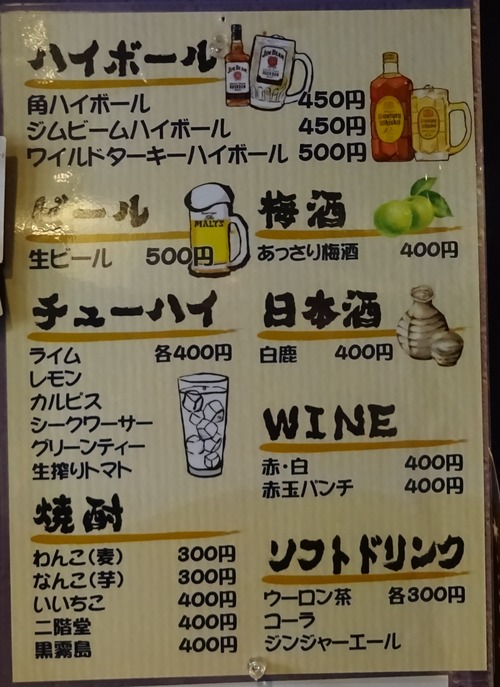 ハイボール
角ハイボール 450円
ジムビームハイボール 450円
ワイルドターキーハイボール 500円
ビール
MALT'S
生ビール 500円
梅酒
あっさり梅酒 400円
チューハイ
ライム 各400円
レモン
カルピス
シークワーサー
グリーンティー
生搾りトマト
日本酒
白鹿 400円
WINE
赤・白 400円
赤玉パンチ 400円
焼酎
わんこ(麦) 300円
なんこ(芋) 300円
いいちこ 400円
二階堂 400円
黒霧島 400円
ソフトドリンク
ウーロン茶 各300円
コーラ
ジンジャーエール